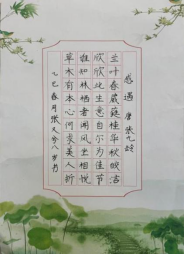 感遇 唐 张九龄
兰叶春葳蕤桂华秋皎洁
欣欣此生意自尔为佳节
谁知林栖者闻风坐相悦
草木有本心何求美人折
乙巳春月张 八岁书